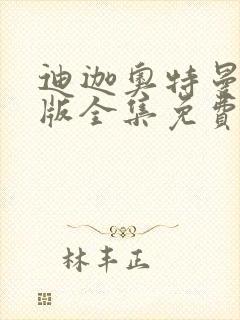 迪迦奥特曼
版全集免費
林丰正